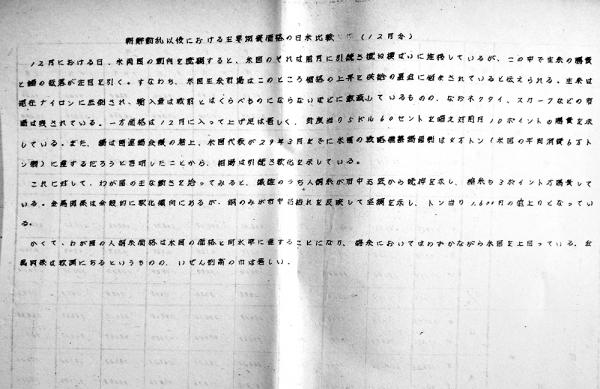 朝鮮動乱以後における主要消費価格の日米比較 (12月分)
12月における日、米両国の動向を見ると、米国のそれは前月に引続き横ばいに推移しているが、この中で生糸の騰貴
と錫の低落が注目を引く。すなわち、米国生糸市場はこのところ価格の上昇と供給の に悩まされていると伝えられる。生糸は
現在ナイロンに圧倒され、輸入量は戦前とはくらべものにならないほどに激減しているものの、なおネクタイ、スカーフなどの需
要は残されている。一方価格は12月に入って上げ足は著しく、 当り5ドル60セントを超え対前月10ポイントの騰貴を示
している。また、錫は 会議の席上、米国代表が29年3月までに米国の が タトン(米国の年間消費6万ト
ン )に達するだろうと言明したことから、相場は引続き軟化を示している。
これに対して、わが国の主な動きを拾ってみると、繊維のうち人絹糸が市中 から を示し、綿糸も3ポイント方騰貴して
いる。金属関係は全般的に軟化傾向にあるが、銅のみが市中 を反映して を示し、トン当り1,600円の値上りとなってい
る。
かくて、わが国の人絹糸価格は米国の価格と同水準に達することになり、綿糸においてはわずかながら米国を上回っている。金
属関係は にあるというものの、いぜん割高の は著しい。